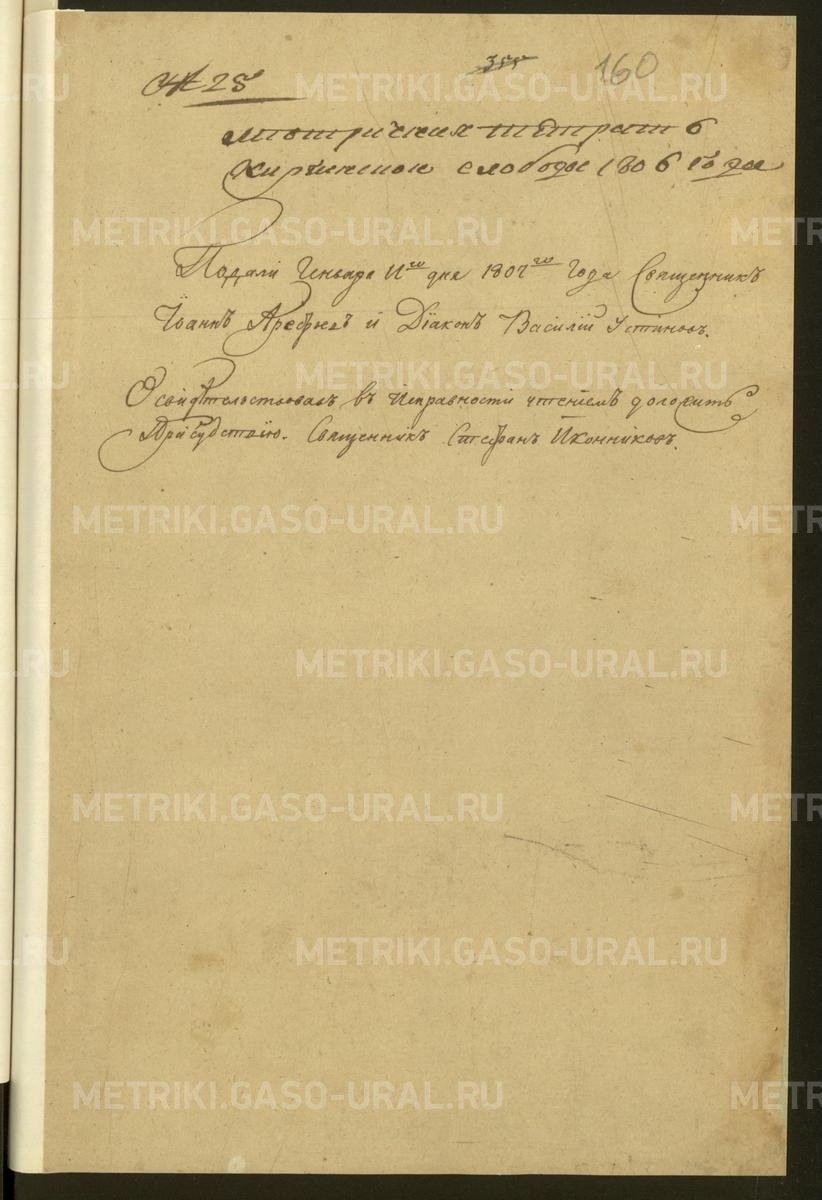 № 25
355
160
Метрическая тетрать в
Киргинской слободы 1806 года
Подали Генваря 11го дня 1807го Года Священникъ
Іоаннъ Арефьевъ и Діаконъ Василій Устиновъ.
Освидѣтельствовалъ въ Исправности чтеніемъ доложить
Присудствію. Священникъ Стефанъ Иконниковъ.
METRIKI.GASO-URAL.RU